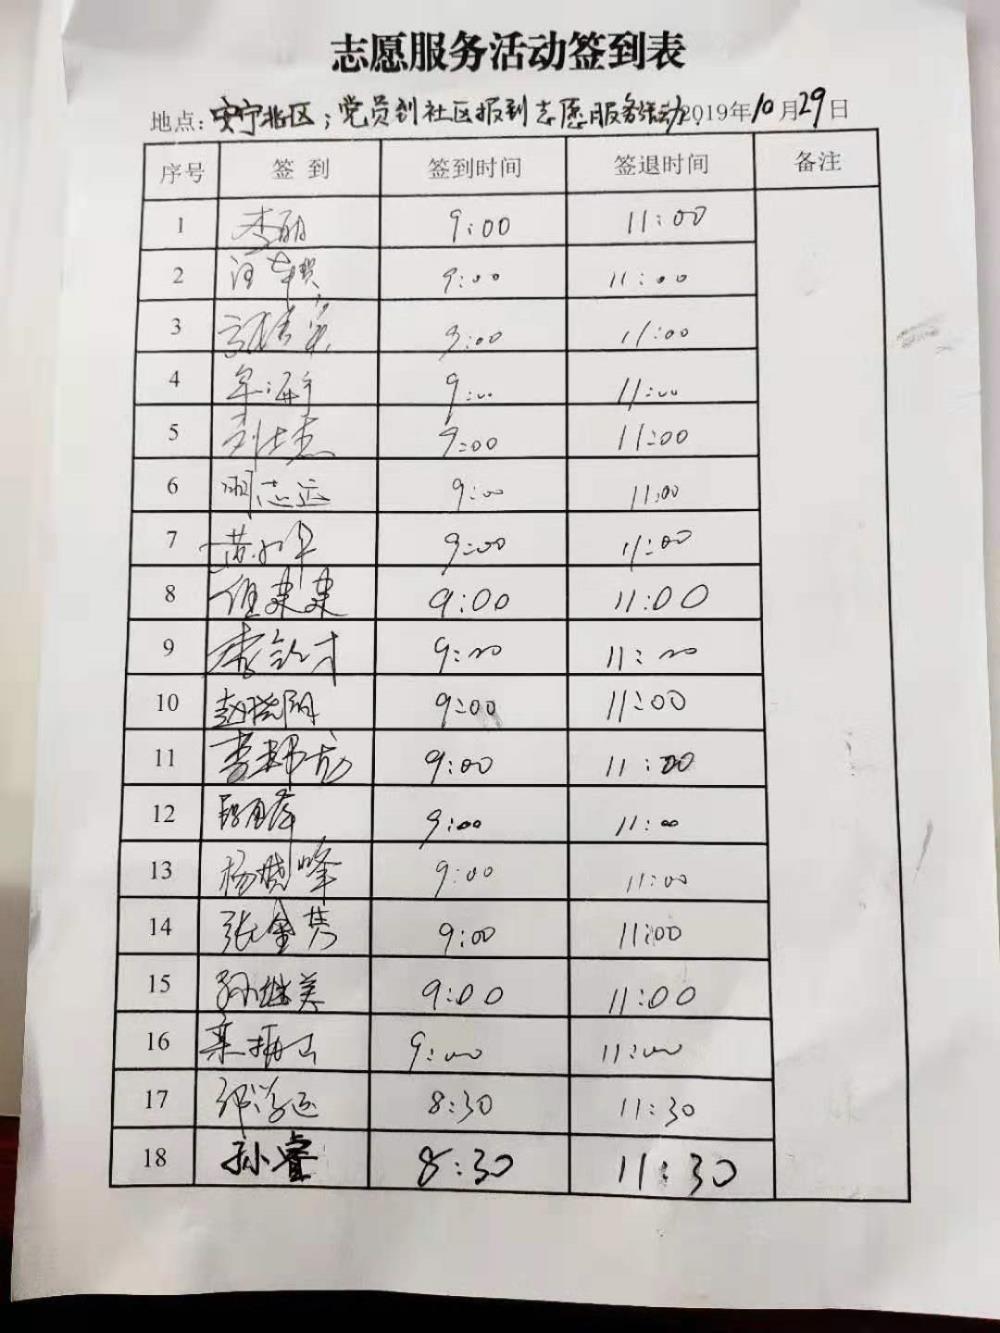 志愿服务活动签到表
地点:安宁北区;党员到社区报到志愿服务活动 2019年10月29日
序号 签 到 签到时间 签退时间 备注
1 李丽 9:00 11:00
2 9:00 11:00
3 9:00 11:00
4 9:00 11:00
5 9:00 11:00
6 明志远 9:00 11:00
7 9:00 11:00
8 9:00 11:00
9 9:00 11:00
10 赵晓阳 9:00 11:00
11 9:00 11:00
12 9:00 11:00
13 杨晓峰 9:00 11:00
14 9:00 11:00
15 孙继美 9:00 11:00
16 9:00 11:00
17 8:30 11:30
18 孙睿 8:30 11:30